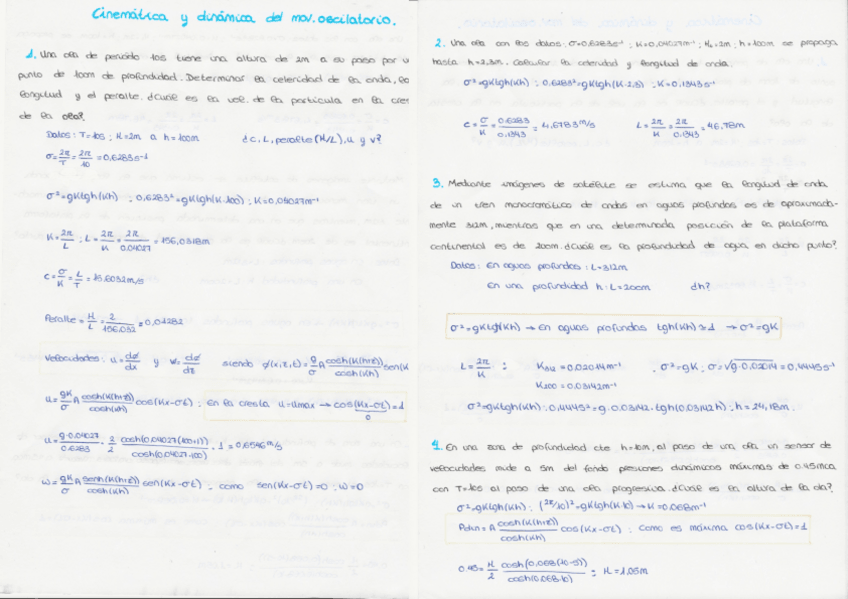 Cinemática y dinámica del mov. oscilatorio.
1. Una ola de periodo 10s tiene una altura de 2m a su paso por u
punto de 100m de profundidad. Determinar la celeridad de la onda, la
longitud y el peralte. ¿Cuál es la vel. de la partícula en la cres
de la ola?
Datos: T=10s; H=2m a h=100m ¿c, L, peralte (H/L), u y v?
σ=2π/T=2π/10=0,6283s⁻¹
σ²=gKtgh(Kh); 0,6283²=gKtgh(K·100); K=0,04027m⁻¹
K=2π/L; L=2π/K=2π/0.04027=156,0318m
c=σ/K=L/T=15.6032m/s
Peralte=H/L=2/156.032=0,01282
Velocidades: u=dø/dx y w=dø/dz siendo ø(x,z,t)=g/σ A cosh(K(h+z))/cosh(Kh) sen(K
u=gK/σ A cosh(K(h+z))/cosh(Kh) cos(Kx-σt); En la cresta u=umax → cos(Kx-σt)=1
0
u=g·0.04027/0.6283 · 2/2 cosh(0,04027(100+1))/cosh(0.04027·100) · 1=0,6546m/s
w=gK/σ A senh(K(h+z))/cosh(Kh) sen(Kx-σt). como sen(Kx-σt)=0; w=0
2. Una ola con los datos: σ=0,6283s⁻¹; K=0,04027m⁻¹; H=2m; h=100m se propaga
hasta h=2,3m. Calcular la celeridad y longitud de onda.
σ²=gKtgh(Kh); 0,6283²=gKtgh(K·2,3); K=0,1343s⁻¹
c=σ/K=0.6283/0.1343=4,6783m/s L=2π/K=2π/0.1343=46,78m
3. Mediante imágenes de satélite se estima que la longitud de onda
de un tren monocromático de ondas en aguas profundas es de aproximada-
mente 312m, mientras que en una determinada posición de la plataforma
continental es de 200m. ¿Cuál es la profundidad de agua en dicho punto?
Datos: En aguas profundas: L=312m
En una profundidad h: L=200m ¿h?
σ²=gKtgh(Kh) → En aguas profundas tgh(Kh)≃1 → σ²=gK
L=2π/K : K₃₁₂=0.02014m⁻¹ . σ²=gK; σ=√g·0.02014=0,4445s⁻¹
K₂₀₀=0.03142m⁻¹
σ²=gKtgh(Kh); 0,4445²=g·0.03142·tgh(0,03142h); h=24,18m.
4. En una zona de profundidad cte h=10m, al paso de una ola un sensor de
velocidades mide a 5m del fondo presiones dinámicas máximas de 0.45mca
con T=10s al paso de una ola progresiva. ¿Cuál es la altura de la ola?
σ²=gKtgh(Kh); (2π/10)²=gKtgh(K·10) → K=0.068m⁻¹
Pdin=A cosh(K(h+z))/cosh(Kh) cos(Kx-σt); como es máxima cos(Kx-σt)=1
0.45=H/2 cosh(0,068(10-5))/cosh(0.068·10) ; H=1,05m